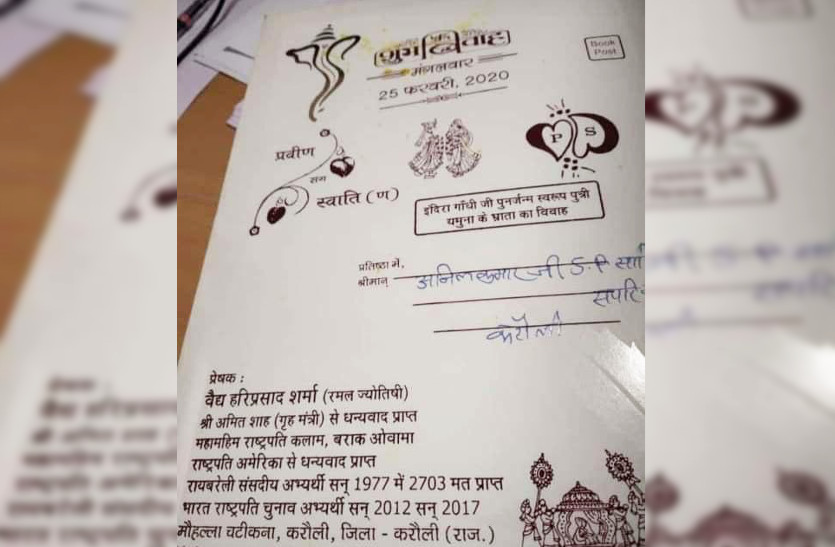 शुभ विवाह
Book
Post
मंगलवार
25 फरवरी, 2020
प्रवीण
संग
स्वाति (ण)
P S
इंदिरा गाँधी जी पुनर्जन्म स्वरूप पुत्री
यमुना के भ्राता का विवाह
प्रतिष्ठा में,
श्रीमान् अनिल कुमार जी S.P सा
सपरि
करौली
प्रेषक :
वैद्य हरिप्रसाद शर्मा (रमल ज्योतिषी)
श्री अमित शाह (गृह मंत्री) से धन्यवाद प्राप्त
महामहिम राष्ट्रपति कलाम, बराक ओवामा
राष्ट्रपति अमेरिका से धन्यवाद प्राप्त
रायबरेली संसदीय अभ्यर्थी सन् 1977 में 2703 मत प्राप्त
भारत राष्ट्रपति चुनाव अभ्यर्थी सन् 2012 सन् 2017
मौहल्ला चटीकना, करौली, जिला - करौली (राज.)